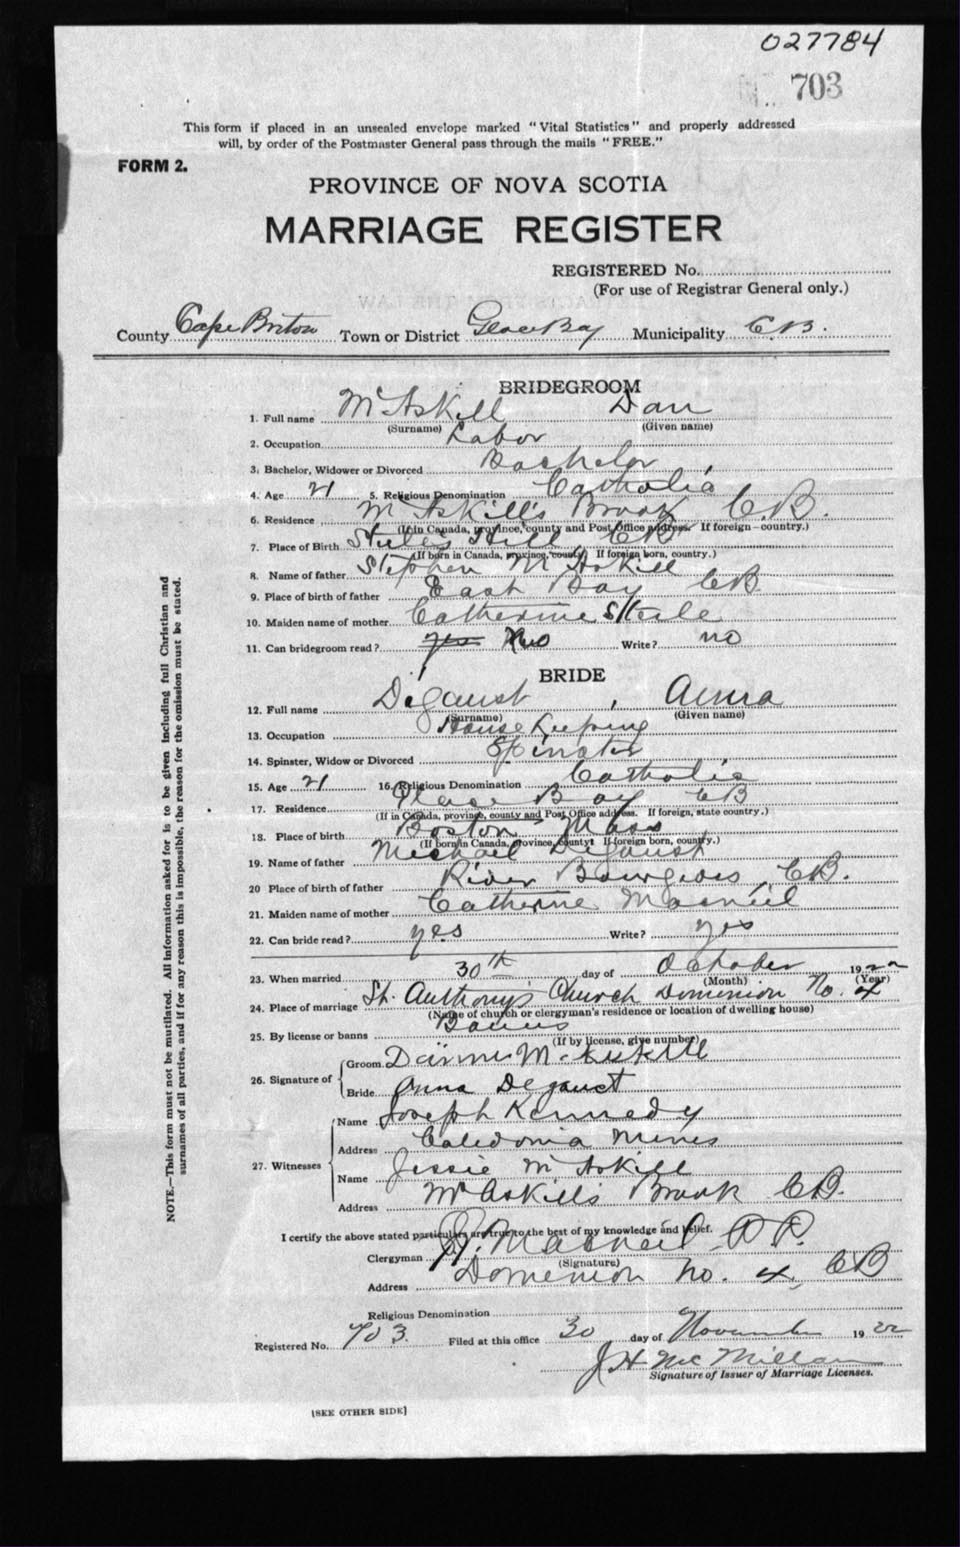 027784
703
This form if placed in an unsealed envelope marked "Vital Statistics" and properly addressed
will, by order of the Postmaster General pass through the mails "FREE."
FORM 2.
PROVINCE OF NOVA SCOTIA
MARRIAGE REGISTER
REGISTERED No.
(For use of Registrar General only.)
County Cape Breton Town or District Glace Bay Municipality C.B.
BRIDEGROOM
1. Full name McAskill Dan
(Surname) (Given name)
2. Occupation Labor
3. Bachelor, Widower or Divorced Bachelor
4. Age 21 5. Religious Denomination Catholic
6. Residence McAskill's Brook C.B.
(If in Canada, province, county and Post Office address. If foreign—country.)
7. Place of Birth Hill CB
(If born in Canada, province, county. If foreign born, country.)
8. Name of father Stephen McAskill
9. Place of birth of father East Bay CB.
10. Maiden name of mother Catherine Steele
11. Can bridegroom read? yes No Write? no
BRIDE
12. Full name Degaust, Anna
(Surname) (Given name)
13. Occupation House Keeping
14. Spinster, Widow or Divorced Spinster
15. Age 21 16. Religious Denomination Catholic
17. Residence Glace Bay CB
(If in Canada, province, county and Post Office address. If foreign, state country.)
18. Place of birth Boston Mass
(If born in Canada, province, county. If foreign born, country.)
19. Name of father Michael Degaust
20 Place of birth of father River Bourgeois, CB.
21. Maiden name of mother Catherine Macneil
22. Can bride read? yes Write? yes
23. When married 30th day of October 1922
(Month) (Year)
24. Place of marriage St. Anthony's Church Dominion No. 4
(Name of church or clergyman's residence or location of dwelling house)
25. By license or banns Banns
(If by license, give number)
26. Signature of Groom McAskill
Bride Anna Degaust
27. Witnesses Name Joseph Kennedy
Address Caledonia Mines
Name Jessie McAskill
Address McAskill's Brook CB.
I certify the above stated particulars are true to the best of my knowledge and belief.
Clergyman Macneil P.P.
(Signature)
Address Dominion No. 4, CB
Religious Denomination
Registered No. 703. Filed at this office 30 day of November 1922
J H McMillan
Signature of Issuer of Marriage Licenses.
[SEE OTHER SIDE]
NOTE.—This form must not be mutilated. All information asked for is to be given including full Christian and
surnames of all parties, and if for any reason this is impossible, the reason for the omission must be stated.